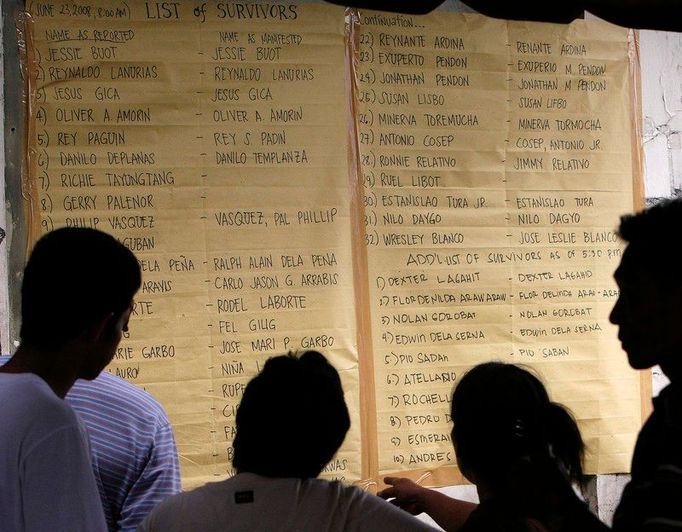 (JUNE 23, 2008, 8:00 AM) LIST of SURVIVORS
NAME AS REPORTED NAME AS MANIFESTED
1) JESSIE BUOT - JESSIE BUOT
2) REYNALDO LANURIAS - REYNALDO LANURIAS
3) JESUS GICA - JESUS GICA
4) OLIVER A. AMORIN - OLIVER A. AMORIN
5) REY PAGUIN - REY S. PADIN
6) DANILO DEPLANAS - DANILO TEMPLANZA
7) RICHIE TAYUNGTANG -
8) GERRY PALENOR -
9) PHILIP VASQUEZ - VASQUEZ, PAL PHILLIP
GUBAN
DELA PEÑA - RALPH ALAIN DELA PEÑA
ARAVIS - CARLO JASON G. ARRABIS
RTE - RODEL LABORTE
- FEL GILIG
RIE GARBO - JOSE MARI P. GARBO
LAURO - NIÑA
- RUPE
- CI
- FA
Continuation...
22) REYNANTE ARDINA - RENANTE ARDINA
23) EXUPERTO PENDON - EXUPERIO M. PENDON
24) JONATHAN PENDON - JONATHAN M. PENDON
25) SUSAN LISBO - SUSAN LIFBO
26) MINERVA TOREMUCHA - MINERVA TORMOCHA
27) ANTONIO COSEP - COSEP, ANTONIO JR.
28) RONNIE RELATIVO - JIMMY RELATIVO
29) RUEL LIBOT -
30) ESTANISLAO TURA JR. - ESTANISLAO TURA
31) NILO DAYGO - NILO DAGYO
32) WRESLEY BLANCO - JOSE LESLIE BLANCO
ADD'L LIST OF SURVIVORS AS OF 5:30 PM
1) DEXTER LAGAHIT - DEXTER LAGAHID
2) FLORDENILDA ARAW ARAW - FLOR DELINDA ARAW-ARA
3) NOLAN GOROBAT - NOLAN GOROBAT
4) EDWIN DELA SERNA - EDWIN DELA SERNA
5) PIO SADAN - PIO SABAN
6) ATELLANO
7) ROCHELL
8) PEDRO D
9) ESMERAL
10) ANDRES